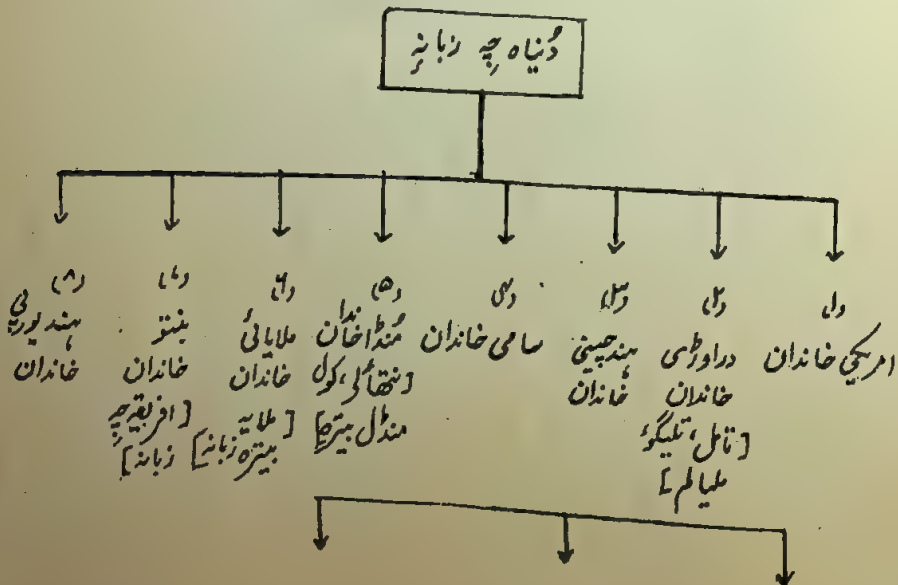 دُنیاہ چہِ زبانہِ
(۱)
امریکی خاندان
(۲)
دراوڑی
خاندان
[تامل، تلیگوٗ
ملیالم]
(۳)
ہند چینی
خاندان
(۴)
سامی خاندان
(۵)
مُنڈا خاندان
منڈل بیترٕ]
(۶)
ملایائی
خاندان
[ملایہ
بیترٕ زبانہٕ]
(۷)
بنتو
خاندان
[افریقہ چہِ
زبانہٕ]
(۸)
ہند یورپی
خاندان